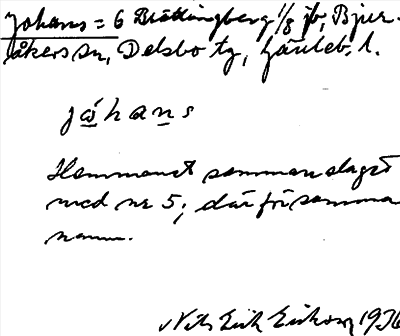 Johans = 6 Brättingberg 1/8 jb, Bjur-
åkers sn, Delsbo tg, Gävleb. l.
jåhans
Hemmanet sammanslaget
med nr 5; därför samma
namn.
Nils Erik Eriksson 1936